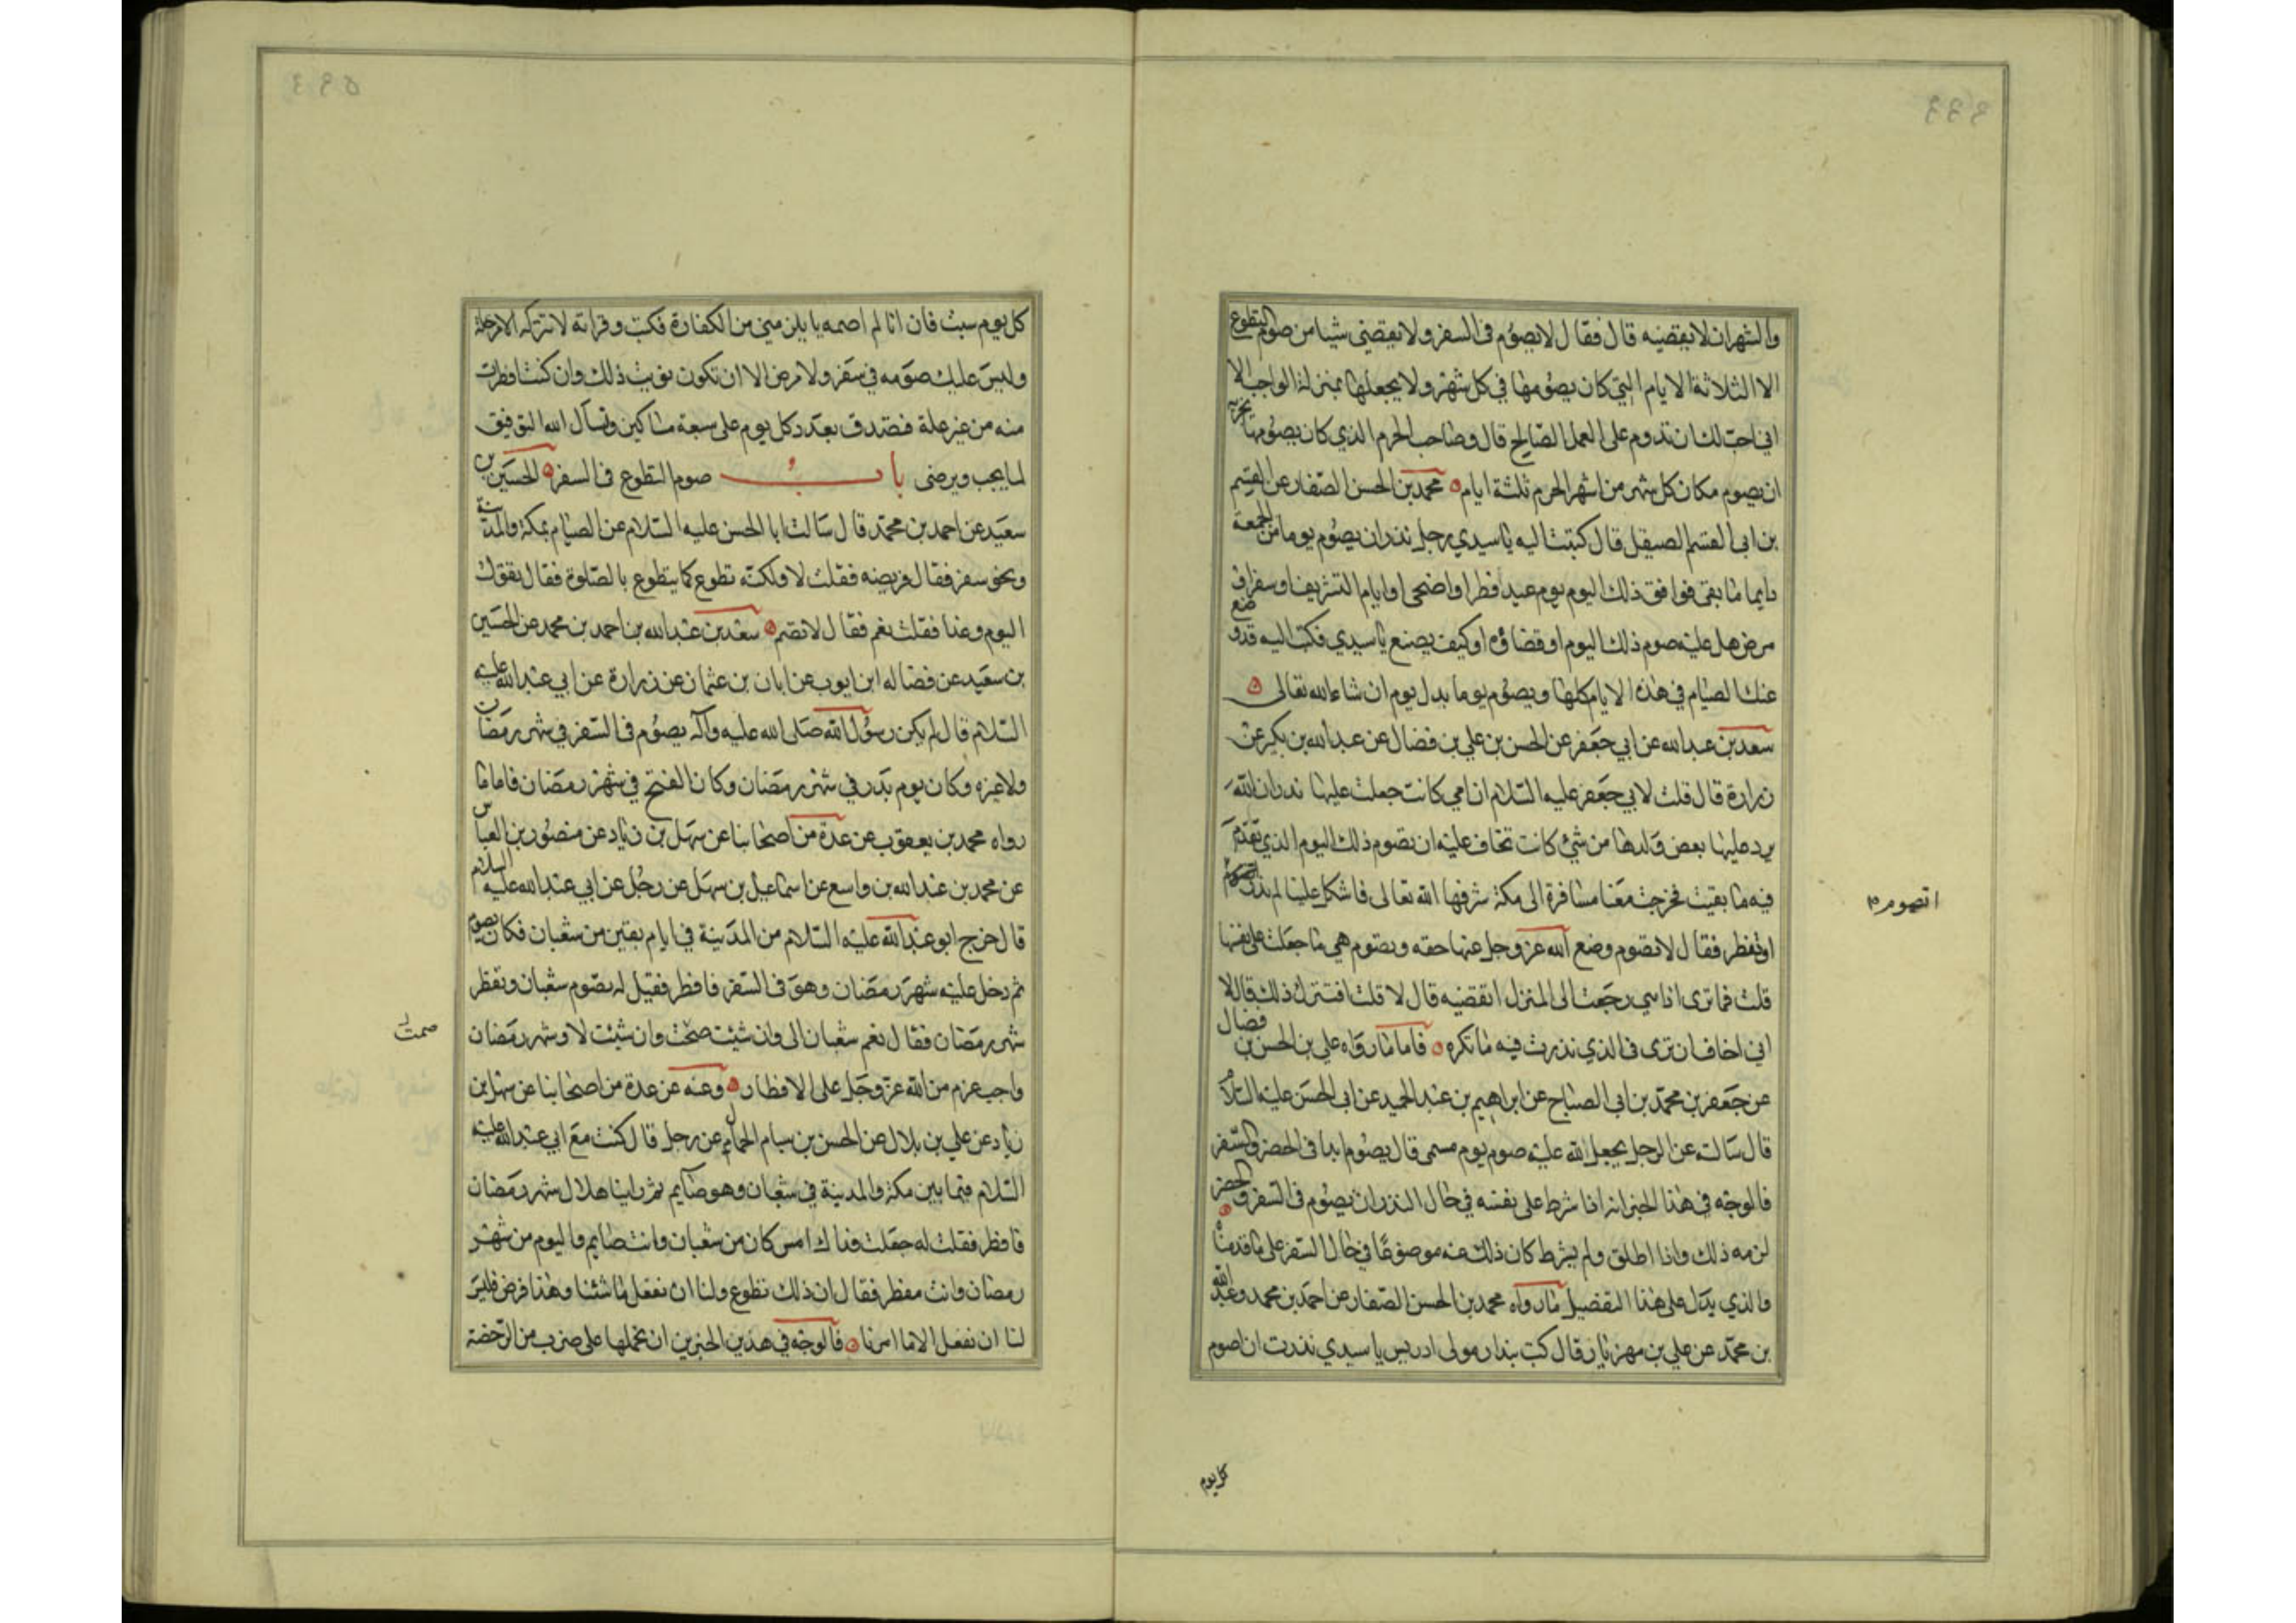 والشهران لا يقضيه قال فقال لا يصوم في السفر ولا يقضي شيئا من صوم التطوع
الا الثلاثة الايام التي كان يصومها في كل شهر ولا يجعلها بمنزلة الواجب الا
اني احب لك ان تدوم على العمل الصالح قال وصاحب الحرم الذي كان يصومها يجزيه
ان يصوم مكان كل شهر من اشهر الحرم ثلثة ايام محمد بن الحسن الصفار عن القسم
بن ابي القسم الصيقل قال كتبت اليه يا سيدي رجل نذر ان يصوم يوما من الجمعة
دايما ما بقي فوافق ذلك اليوم يوم عيد فطر او اضحى او ايام التشريق او سفر او
مرض هل عليه صوم ذلك اليوم او قضاؤه او كيف يصنع يا سيدي فكتب اليه قد وضع
عنك الصيام في هذه الايام كلها ويصوم يوما بدل يوم ان شاء الله تعالى
سعد بن عبد الله عن ابي جعفر عن الحسن بن علي بن فضال عن عبد الله بن بكير عن
زرارة قال قلت لابي جعفر عليه السلام ان امي كانت جعلت عليها نذرا ان الله
يرد عليها بعض ولدها من شيء كانت تخاف عليه ان تصوم ذلك اليوم الذي تقدم
فيه ما بقيت فخرجت معنا مسافرة الى مكة شرفها الله تعالى فاشكل علينا لم ندر اتصوم
او تفطر فقال لا تصوم وضع الله عز وجل عنها حقه وتصوم هي ما جعلت على نفسها
قلت فما ترى اذا هي رجعت الى المنزل اتقضيه قال لا قلت افتترك ذلك قال لا
اني اخاف ان ترى في الذي نذرت فيه ما تكره فاما ما رواه علي بن الحسن بن فضال
عن جعفر بن محمد بن ابي الصباح عن ابراهيم بن عبد الحميد عن ابي الحسن عليه السلام
قال سالته عن الرجل يجعل لله عليه صوم يوم مسمى قال يصوم ابدا في الحضر والسفر
فالوجه في هذا الخبر انه اذا شرط على نفسه في حال النذر ان يصوم في السفر والحضر
لزمه ذلك واذا اطلق ولم يشرط كان ذلك عنه موضوعا في حال السفر على ما قدمناه
والذي يدل على هذا التفصيل ما رواه محمد بن الحسن الصفار عن احمد بن محمد وعبد الله
بن محمد عن علي بن مهزيار قال كتب بندار مولى ادريس يا سيدي نذرت ان اصوم
اتصوم
كل يوم
كل يوم سبت فان انا لم اصمه يا يلزمني من الكفارة فكتب وقراته لا تتركه الا من علة
وليس عليك صومه في سفر ولا مرض الا ان تكون نويت ذلك وان كنت افطرت
منه من غير علة فتصدق بعدد كل يوم على سبعة مساكين ونسال الله التوفيق
لما يحب ويرضى باب صوم التطوع في السفر الحسين بن
سعيد عن احمد بن محمد قال سالت ابا الحسن عليه السلام عن الصيام بمكة والمدينة
ونحن سفر فقال فريضه فقلت لا ولكنه تطوع كما يتطوع بالصلوة فقال تقول
اليوم وغدا فقلت نعم فقال لا تصم سعد بن عبد الله بن احمد بن محمد عن الحسين
بن سعيد عن فضاله ابن ايوب عن ابان بن عثمان عن زرارة عن ابي عبد الله عليه
السلام قال لم يكن رسول الله صلى الله عليه وآله يصوم في السفر في شهر رمضان
ولا غيره وكان يوم بدر في شهر رمضان وكان الفتح في شهر رمضان فاما ما
رواه محمد بن يعقوب عن عدة من اصحابنا عن سهل بن زياد عن منصور بن العباس
عن محمد بن عبد الله بن واسع عن اسماعيل بن سهل عن رجل عن ابي عبد الله عليه السلام
قال خرج ابو عبد الله عليه السلام من المدينة في ايام بقين من شعبان فكان يصوم
ثم دخل عليه شهر رمضان وهو في السفر فافطر فقيل له تصوم شعبان وتفطر
شهر رمضان فقال نعم شعبان الى وان شئت صمت وان شئت لا وشهر رمضان
واجب عزم من الله عز وجل على الافطار وعنه عن عدة من اصحابنا عن سهل بن
زياد عن علي بن بلال عن الحسن بن بسام الجمال عن رجل قال كنت مع ابي عبد الله عليه
السلام فيما بين مكة والمدينة في شعبان وهو صايم ثم راينا هلال شهر رمضان
فافطر فقلت له جعلت فداك امس كان من شعبان وانت صايم واليوم من شهر
رمضان وانت مفطر فقال ان ذلك تطوع ولنا ان نفعل ما شئنا وهذا فرض فليس
لنا ان نفعل الا ما امرنا فالوجه في هذين الخبرين ان نحملها على ضرب من الرخصة
صمت